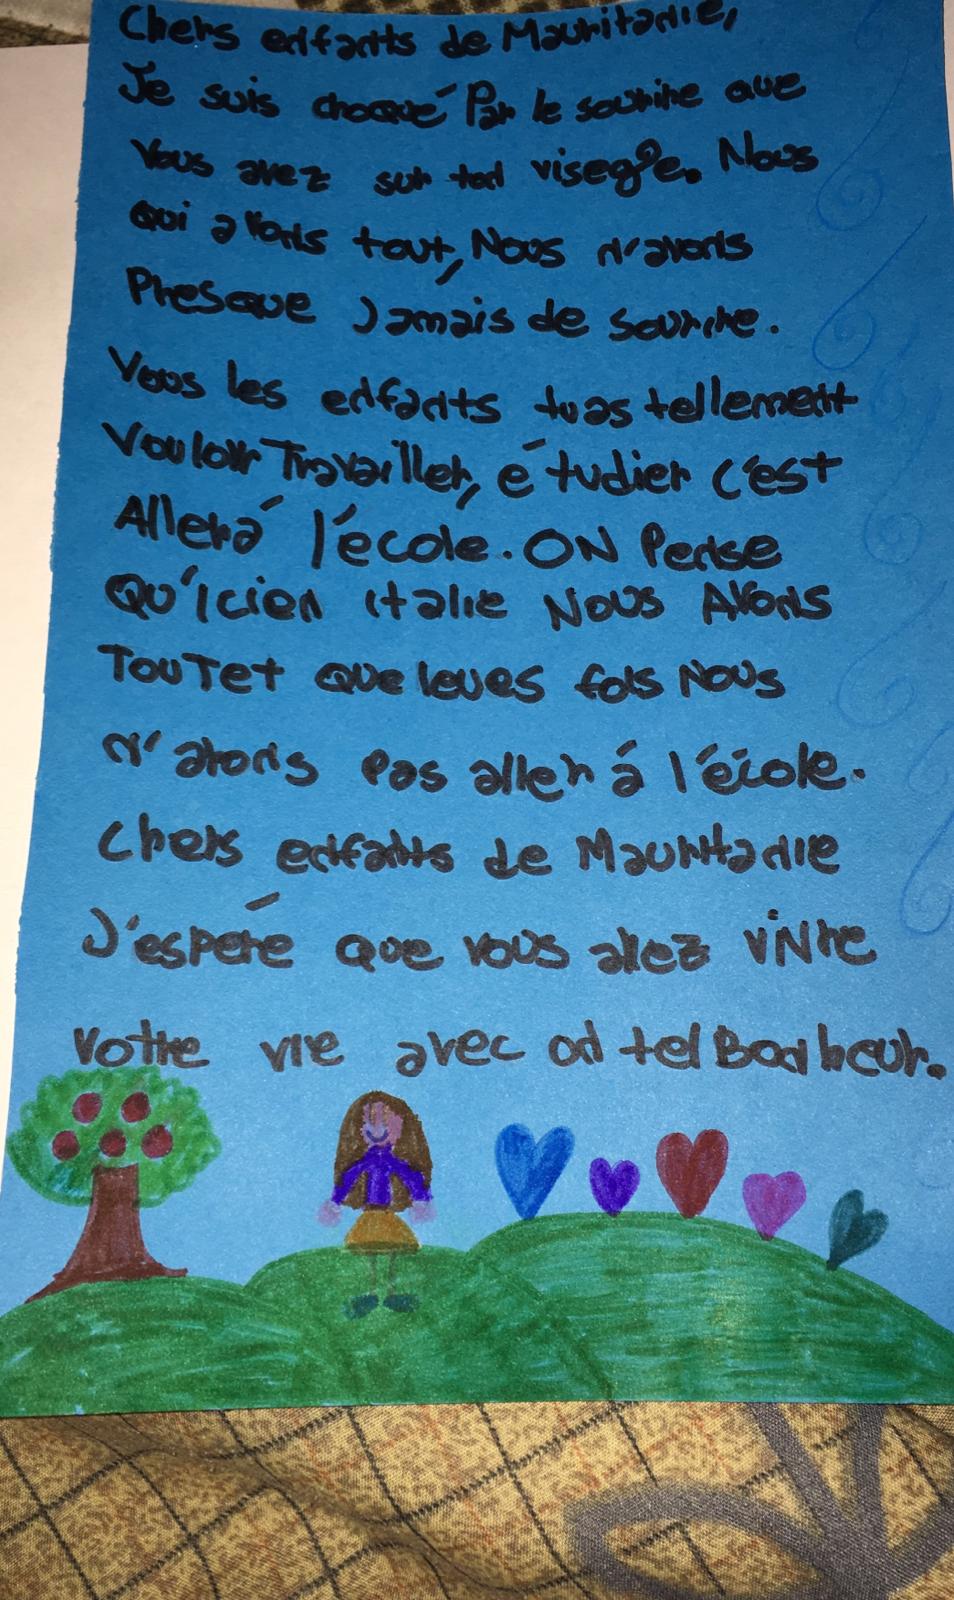 Chers enfants de Mauritanie,
Je suis choqué Par le sourire que
Vous avez sur ton visegge. Nous
qui avons tout, Nous n'avons
Presque Jamais de sourire.
Vous les enfants tu as tellement
Vouloir Travailler, étudier c'est
Allerá l'école. ON Pense
Qu'icien italie Nous Avons
TouTet quelques fois Nous
n'avons pas aller á l'école.
Chers enfants de Mauritanie
J'espéré que vous allez viNre
Votre vie avec on tel Bonheur.